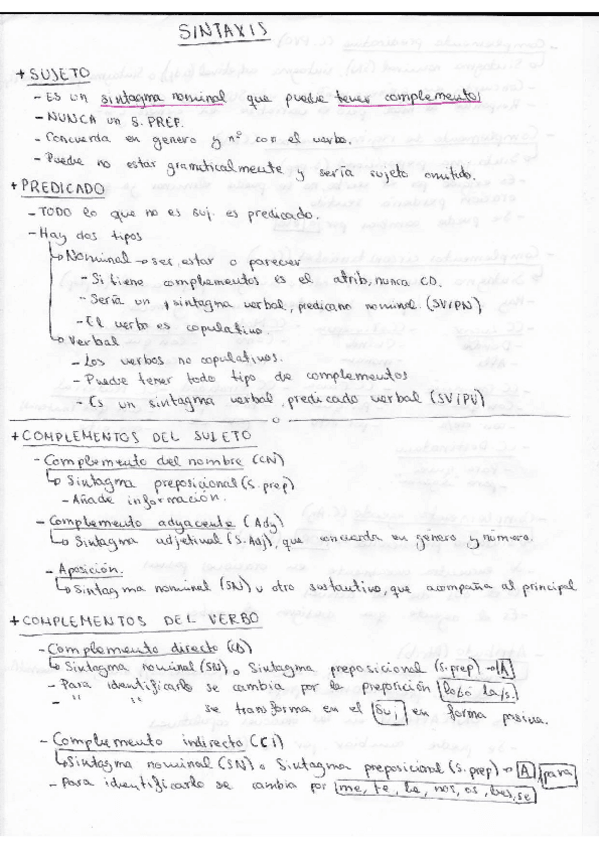 SINTAXIS
+ SUJETO
- Es un sintagma nominal que puede tener complementos
- NUNCA un S. PREF.
- Concuerda en genero y nº con el verbo.
- Puede no estar gramaticalmente y sería sujeto omitido.
+ PREDICADO
- TODO lo que no es suj. es predicado.
- Hay dos tipos
↳ Nominal → ser, estar o parecer
- Si tiene complementos es el atrib, nunca CD.
- Sería un sintagma verbal, predicano nominal. (SV/PN)
- El verbo es copulativo.
↳ Verbal
- Los verbos no copulativos.
- Puede tener todo tipo de complementos
- Es un sintagma verbal, predicado verbal (SV/PV)
+ COMPLEMENTOS DEL SUJETO
- Complemento del nombre (CN)
↳ Sintagma preposicional (S. prep)
- Añade información.
- Complemento adyacente (Ady)
↳ Sintagma adjetival (S. Adj), que concuerda en género y número.
- Aposición.
↳ Sintagma nominal (SN) u otro sustantivo, que acompaña al principal
+ COMPLEMENTOS DEL VERBO
- Complemento directo (CD)
↳ Sintagma nominal (SN) o Sintagma preposicional (S. prep) → A
- Para identificarlo se cambia por la preposición lo/s o la/s.
- " " se transforma en el Suj en forma pasiva.
- Complemento indirecto (CI)
↳ Sintagma nominal (SN) o Sintagma preposicional (S. prep) → A, para
- Para identificarlo se cambia por me, te, le, nos, os, les, se